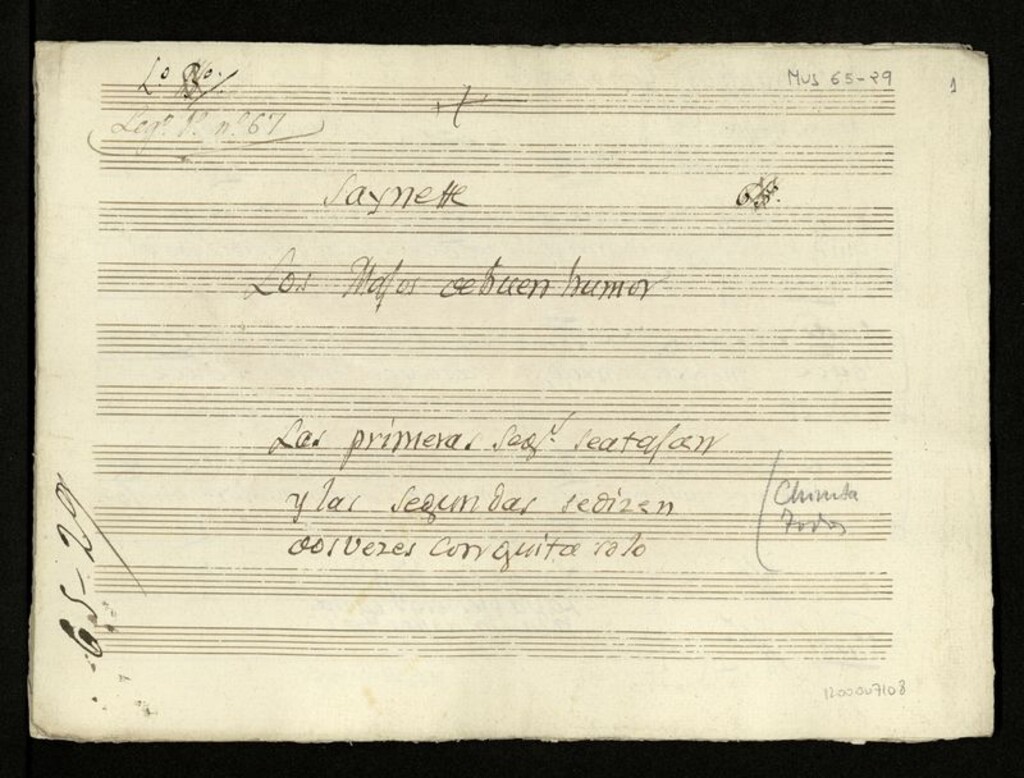 L.º
Mus 65-29
1
Leg.º 1.º n.º 67
Saynette
Los Majos de buen humor
Las primeras seg.s se atajan
y las segundas se dizen
dos vezes con guita solo
Chinita
Todos
65-29
1200007108